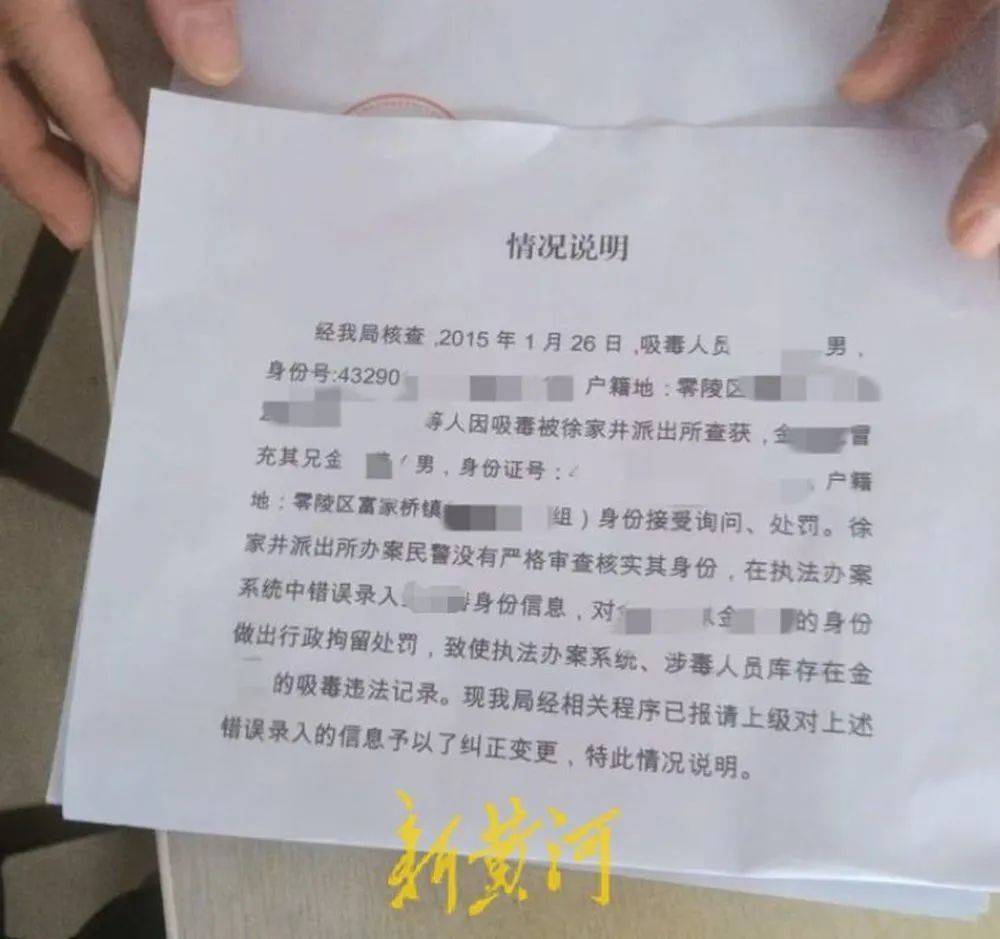 情况说明
经我局核查,2015年1月26日,吸毒人员 男,
身份号:43290 户籍地:零陵区
等人因吸毒被徐家井派出所查获,金 冒
充其兄金 男,身份证号: 户籍
地:零陵区富家桥镇 组)身份接受询问、处罚。徐
家井派出所办案民警没有严格审查核实其身份,在执法办案
系统中错误录入 身份信息,对 金 的身份
做出行政拘留处罚,致使执法办案系统、涉毒人员库存在金
的吸毒违法记录。现我局经相关程序已报请上级对上述
错误录入的信息予以了纠正变更,特此情况说明。
新黄河